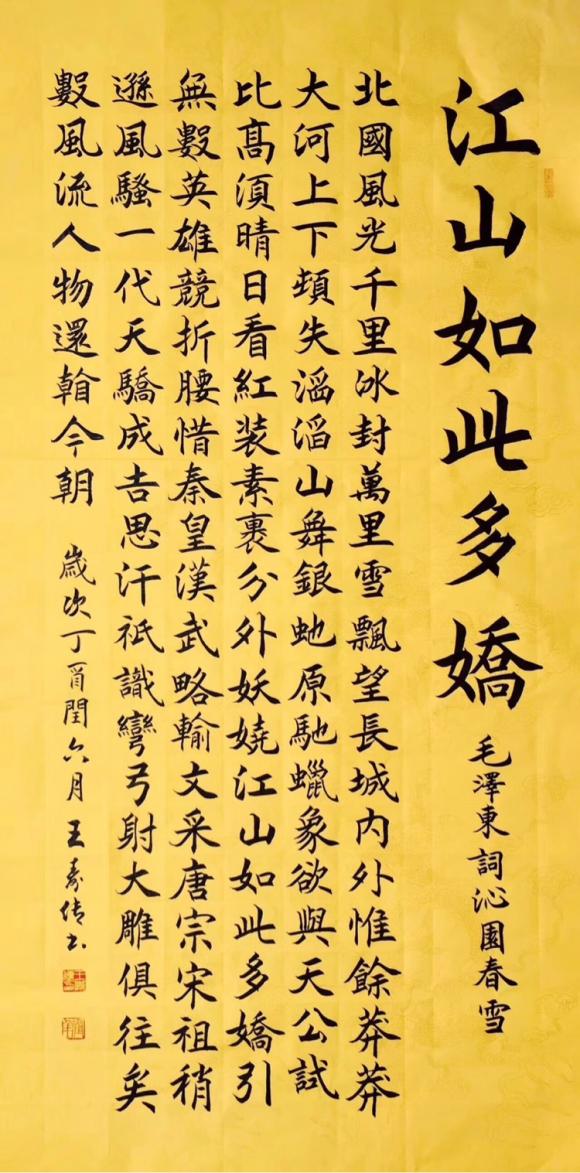 江山如此多嬌
毛澤東詞沁園春雪
北國風光千里冰封萬里雪飄望長城内外惟餘莽莽
大河上下頓失滔滔山舞銀虵原馳蠟象欲與天公試
比髙須晴日看紅装素裹分外妖嬈江山如此多嬌引
無數英雄競折腰惜秦皇漢武略輸文采唐宗宋祖稍
遜風騷一代天驕成吉思汗祇識彎弓射大雕俱往矣
數風流人物還看今朝
歲次丁酉閏六月王书